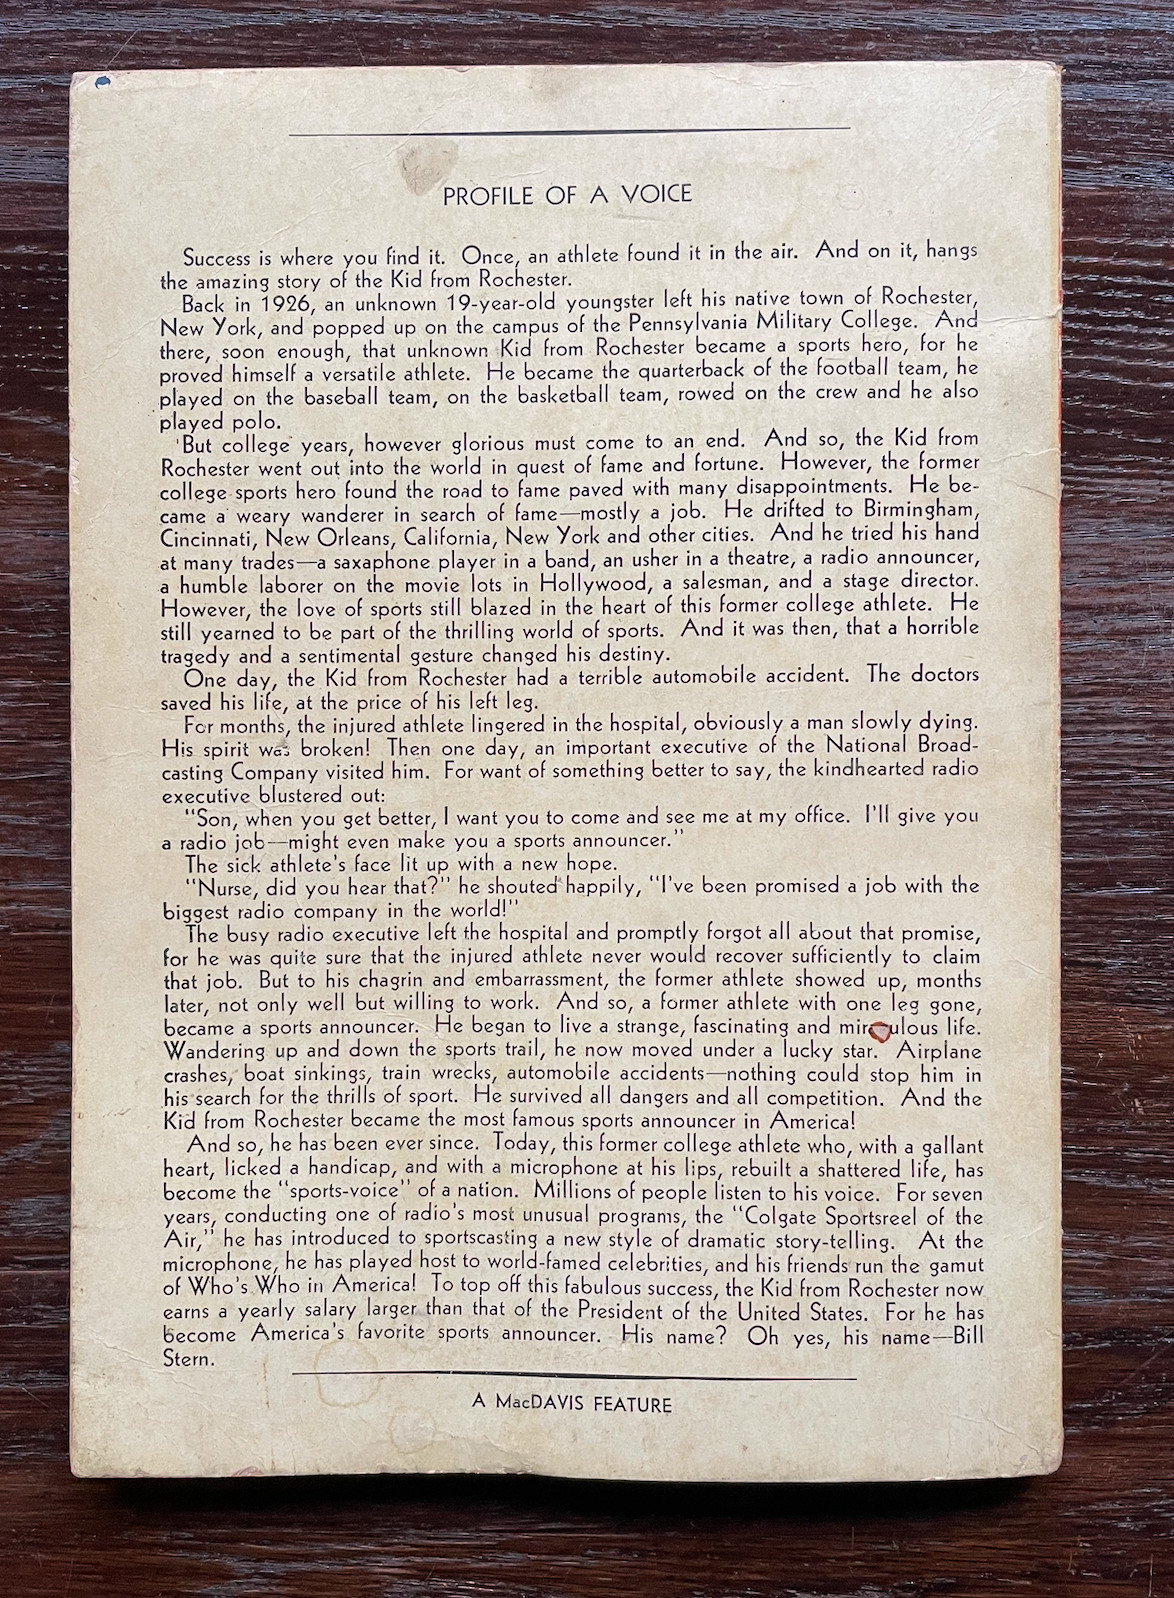 PROFILE OF A VOICE
Success is where you find it. Once, an athlete found it in the air. And on it, hangs
the amazing story of the Kid from Rochester.
Back in 1926, an unknown 19-year-old youngster left his native town of Rochester,
New York, and popped up on the campus of the Pennsylvania Military College. And
there, soon enough, that unknown Kid from Rochester became a sports hero, for he
proved himself a versatile athlete. He became the quarterback of the football team, he
played on the baseball team, on the basketball team, rowed on the crew and he also
played polo.
But college years, however glorious must come to an end. And so, the Kid from
Rochester went out into the world in quest of fame and fortune. However, the former
college sports hero found the road to fame paved with many disappointments. He be-
came a weary wanderer in search of fame—mostly a job. He drifted to Birmingham,
Cincinnati, New Orleans, California, New York and other cities. And he tried his hand
at many trades—a saxaphone player in a band, an usher in a theatre, a radio announcer,
a humble laborer on the movie lots in Hollywood, a salesman, and a stage director.
However, the love of sports still blazed in the heart of this former college athlete. He
still yearned to be part of the thrilling world of sports. And it was then, that a horrible
tragedy and a sentimental gesture changed his destiny.
One day, the Kid from Rochester had a terrible automobile accident. The doctors
saved his life, at the price of his left leg.
For months, the injured athlete lingered in the hospital, obviously a man slowly dying.
His spirit was broken! Then one day, an important executive of the National Broad-
casting Company visited him. For want of something better to say, the kindhearted radio
executive blustered out:
"Son, when you get better, I want you to come and see me at my office. I'll give you
a radio job—might even make you a sports announcer."
The sick athlete's face lit up with a new hope.
"Nurse, did you hear that?" he shouted happily, "I've been promised a job with the
biggest radio company in the world!"
The busy radio executive left the hospital and promptly forgot all about that promise,
for he was quite sure that the injured athlete never would recover sufficiently to claim
that job. But to his chagrin and embarrassment, the former athlete showed up, months
later, not only well but willing to work. And so, a former athlete with one leg gone,
became a sports announcer. He began to live a strange, fascinating and miraculous life.
Wandering up and down the sports trail, he now moved under a lucky star. Airplane
crashes, boat sinkings, train wrecks, automobile accidents—nothing could stop him in
his search for the thrills of sport. He survived all dangers and all competition. And the
Kid from Rochester became the most famous sports announcer in America!
And so, he has been ever since. Today, this former college athlete who, with a gallant
heart, licked a handicap, and with a microphone at his lips, rebuilt a shattered life, has
become the "sports-voice" of a nation. Millions of people listen to his voice. For seven
years, conducting one of radio's most unusual programs, the "Colgate Sportsreel of the
Air," he has introduced to sportscasting a new style of dramatic story-telling. At the
microphone, he has played host to world-famed celebrities, and his friends run the gamut
of Who's Who in America! To top off this fabulous success, the Kid from Rochester now
earns a yearly salary larger than that of the President of the United States. For he has
become America's favorite sports announcer. His name? Oh yes, his name—Bill
Stern.
A MacDAVIS FEATURE